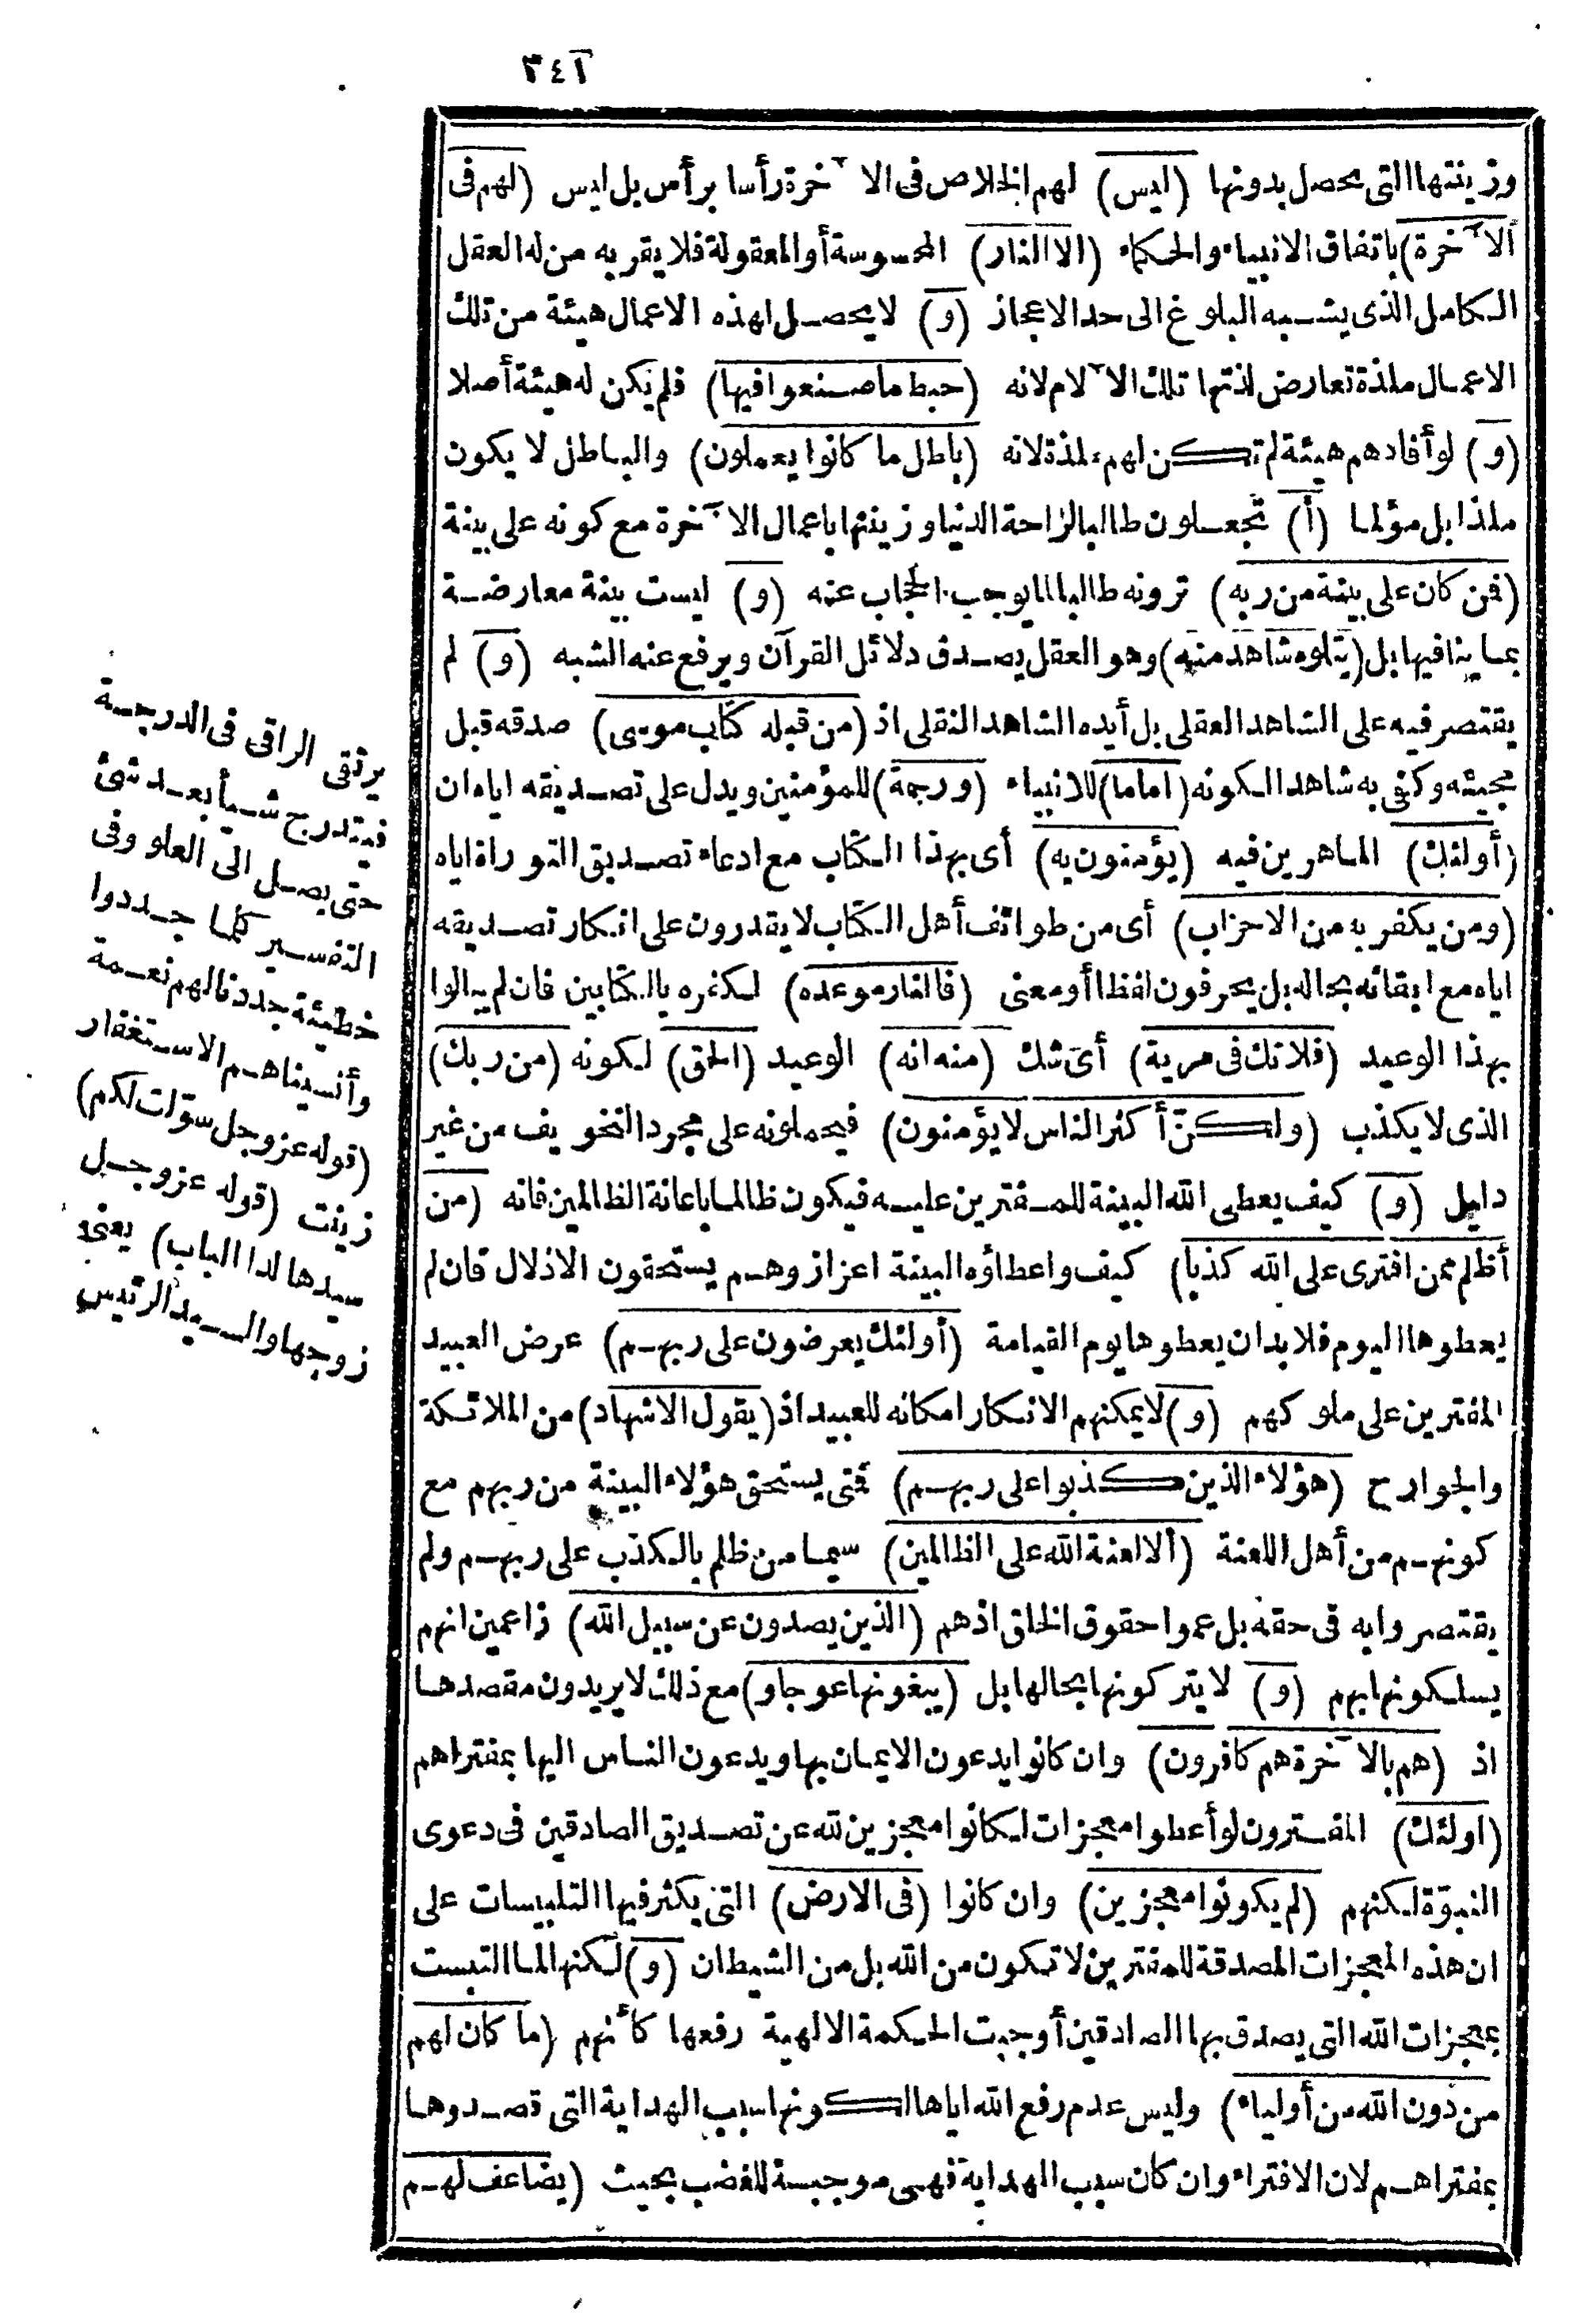 ٣٤١
وزينتها التى يحصل بدونها (ليس) لهم الخلاص فى الآخرة رأسا برأس بل ليس (لهم فى
الآخرة) باتفاق الانبياء والحكماء (الا النار) المحسوسة أو المعقولة فلا يقر به من له العقل
الكامل الذى يشبه البلوغ الى حد الاعجاز (و) لا يحصل لهذه الاعمال هيئة من تلك
الاعمال ملذة تعارض لذتها تلك الآلام لانه (حبط ما صنعوا فيها) فلم يكن له هيئة أصلا
(و) لو أفادهم هيئة لم تكن لهم ملذة لانه (باطل ما كانوا يعملون) والباطل لا يكون
ملذا بل مؤلما (أ) تجعلون طالبا لراحة الدنيا وزينتها باعمال الآخرة مع كونه على بينة
(فمن كان على بينة من ربه) ترونه طالبا لما يوجب الحجاب عنه (و) ليست بينة معارضة
بما ينافيها بل (يتلوه شاهد منه) وهو العقل يصدق دلائل القرآن ويرفع عنه الشبه (و) لم
يقتصر فيه على الشاهد العقلى بل أيده الشاهد النقلى اذ (من قبله كتاب موسى) صدقه قبل
مجيئه وكفى به شاهدا لكونه (اماما) للانبياء (ورحمة) للمؤمنين ويدل على تصديقه اياه ان
(أولئك) الماهرين فيه (يؤمنون به) أى بهذا الكتاب مع ادعاء تصديق التوراة اياه
(ومن يكفر به من الاحزاب) أى من طوائف أهل الكتاب لا يقدرون على انكار تصديقه
اياه مع ابقائه بحاله بل يحرفون لفظا أو معنى (فالنار موعده) لكفره بالكتابين فان لم يبالوا
بهذا الوعيد (فلا تك فى مرية) أى شك (منه انه) الوعيد (الحق) لكونه (من ربك)
الذى لا يكذب (ولكنّ أكثر الناس لا يؤمنون) فيحملونه على مجرد التخويف من غير
دليل (و) كيف يعطى الله البينة للمفترين عليه فيكون ظالما باعانة الظالمين فانه (من
أظلم ممن افترى على الله كذبا) كيف واعطاؤه البينة اعزاز وهم يستحقون الاذلال فان لم
يعطوها اليوم فلا بد ان يعطوها يوم القيامة (أولئك يعرضون على ربهم) عرض العبيد
المفترين على ملوكهم (و) لا يمكنهم الانكار امكانه للعبيد اذ (يقول الاشهاد) من الملائكة
والجوارح (هؤلاء الذين كذبوا على ربهم) فمتى يستحق هؤلاء البينة من ربهم مع
كونهم من أهل اللعنة (ألا لعنة الله على الظالمين) سيما من ظلم بالكذب على ربهم ولم
يقتصروا به فى حقه بل عموا حقوق الخلق اذ هم (الذين يصدون عن سبيل الله) زاعمين انهم
يسلكونها بهم (و) لا يتركونها بحالها بل (يبغونها عوجا و) مع ذلك لا يريدون مقصدها
اذ (هم بالآخرة هم كافرون) وان كانوا يدعون الايمان بها ويدعون الناس اليها بمفتراهم
(اولئك) المفترون لو أعطوا معجزات لكانوا معجزين لله عن تصديق الصادقين فى دعوى
النبوّة لكنهم (لم يكونوا معجزين) وان كانوا (فى الارض) التى يكثر فيها التلبيسات على
ان هذه المعجزات المصدقة للمفترين لا تكون من الله بل من الشيطان (و) لكنها لما التبست
بمعجزات الله التى يصدق بها الصادقين أوجبت الحكمة الالهية رفعها كأنهم (ما كان لهم
من دون الله من أولياء) وليس عدم رفع الله اياها لكونها سبب الهداية التى قصدوها
بمفتراهم لان الافتراء وان كان سبب الهداية فهى موجبة للغضب بحيث (يضاعف لهم
يرتقى الراقى فى الدرجة
فيتدرج شيأ بعد شئ
حتى يصل الى العلو وفى
التفسير كلما جددوا
خطيئة جددنا لهم نعمة
وأنسيناهم الاستغفار
(قوله عز وجل سوّلت لكم)
زينت (قوله عز وجل
سيدها لدا الباب) يعنى
زوجها والسيد الرئيس